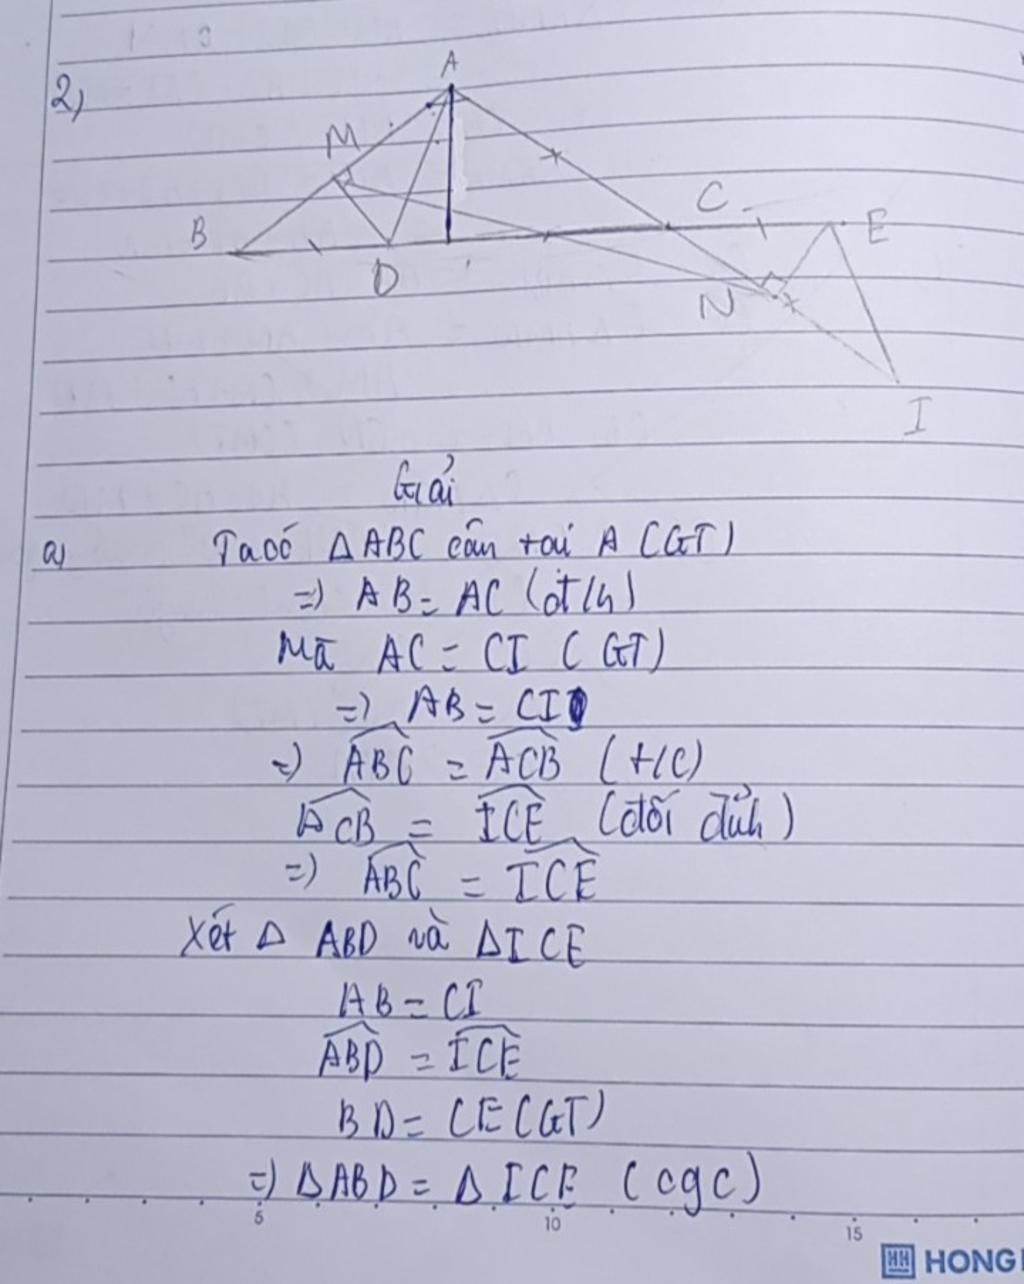 2)
A
M
B
C
E
D
N
I
Giải
a) Ta có △ABC cân tại A (GT)
=) AB = AC (đ/h)
Mà AC = CI (GT)
=) AB = CI
=) ABC = ACB (t/c)
ACB = ICE (đối đỉnh)
=) ABC = ICE
Xét △ ABD và △ICE
AB = CI
ABD = ICE
BD = CE (GT)
=) △ABD = △ICE (cgc)
5 10 15
HH HONG